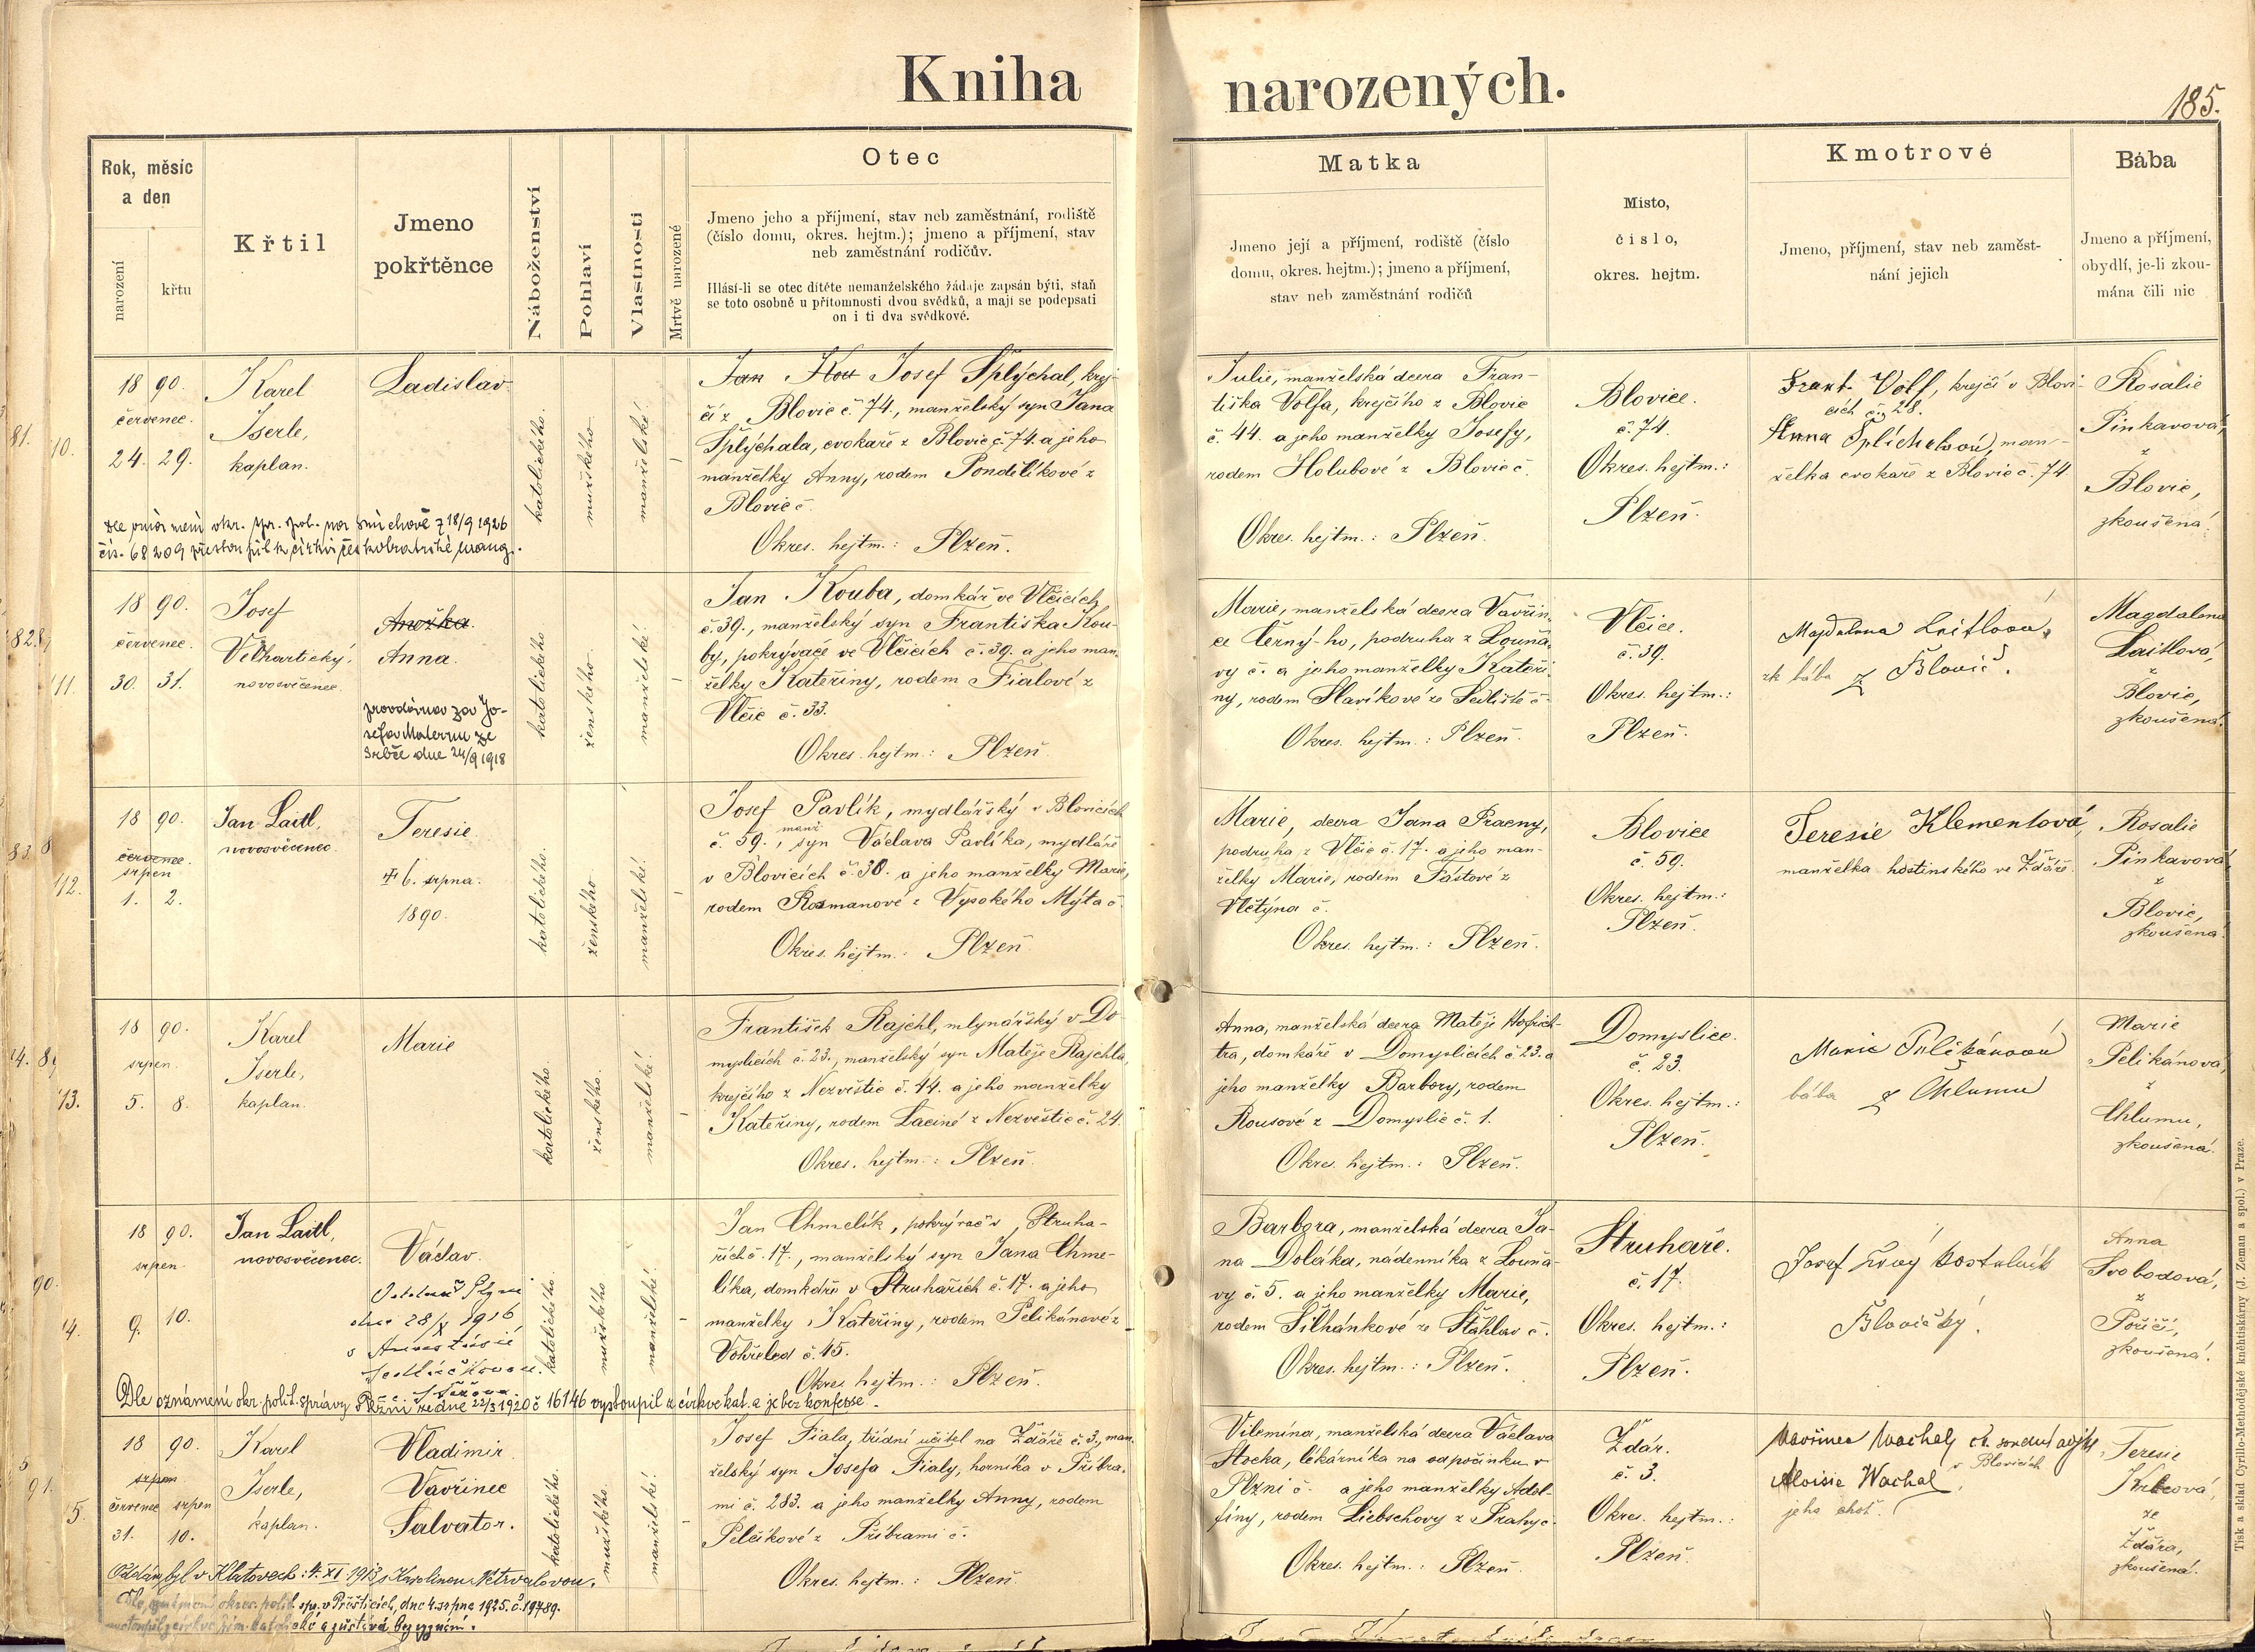 Kniha narozených.
185.
Rok, měsíc
a den
narození
křtu
Křtil
Jmeno
pokřtěnce
Náboženství
Pohlaví
Vlastnosti
Mrtvě narozené
Otec
Jmeno jeho a příjmení, stav neb zaměstnání, rodiště
(číslo domu, okres. hejtm.); jmeno a příjmení, stav
neb zaměstnání rodičův.
Hlásí-li se otec dítěte nemanželského žádaje zapsán býti, staň
se toto osobně u přítomnosti dvou svědků, a mají se podepsati
on i ti dva svědkové.
Matka
Jmeno její a příjmení, rodiště (číslo
domu, okres. hejtm.); jmeno a příjmení,
stav neb zaměstnání rodičů
Misto,
číslo,
okres. hejtm.
Kmotrové
Jmeno, příjmení, stav neb zaměst-
nání jejich
Bába
Jmeno a příjmení,
obydlí, je-li zkou-
mána čili nic
81.
10.
18 90.
červenec.
24. 29.
Karel
Iserle,
kaplan.
Ladislav
katolického.
mužského
manželské!
Jan Kou Josef Šplýchal, krej-
čí z Blovic č. 74., manželský syn Jana
Šplýchala, cvokaře z Blovic č. 74. a jeho
manželky Anny, rodem Pondělíkové z
Blovic č.
Okres. hejtm.: Plzeň.
Julie, manželská dcera Fran-
tiška Volfa, krejčího z Blovic
č. 44. a jeho manželky Josefy,
rodem Holubové z Blovic č.
Okres. hejtm.: Plzeň.
Blovice.
č. 74.
Okres. hejtm.:
Plzeň.
Frant. Volf, krejčí v Blovi-
cích čp 28.
Anna Šplíchalová, man-
želka cvokaře z Blovic č. 74
Rosalie
Pinkavová,
z
Blovic,
zkoušená.
18/9 1926
čís. 68209 přestoupil k církvi českobratrské evang.
828
111.
18 90.
červenec.
30. 31.
Josef
Velhartický,
novosvěcenec.
Anežka.
Anna.
provdána za Jo-
sefa Maternu ze
Srbče dne 24/9 1918
katolického
ženského
manželské!
Jan Kouba, domkář ve Vlčicích
č. 39., manželský syn Františka Kou-
by, pokrývače ve Vlčicích č. 39. a jeho man-
želky Kateřiny, rodem Fialové z
Vlčic č. 33.
Okres. hejtm.: Plzeň
Marie, manželská dcera Vavřin-
ce Černý-ho, podruha z Louňa-
vy č. a jeho manželky Kateři-
ny, rodem Slavíkové ze Sedliště č.
Okres. hejtm.: Plzeň.
Vlčice.
č. 39.
Okres. hejtm.:
Plzeň.
Magdalena Laitlová,
zk bába z Blovic.
Magdalena
Laitlová,
z
Blovic,
zkoušená.
83. 8
112.
18 90.
červenec.
srpen
1. 2.
Jan Laitl,
novosvěcenec.
Teresie.
6. srpna.
1890.
katolického.
ženského
manželské!
Josef Pavlík, mydlářský v Blovicích
č. 59., manž. syn Václava Pavlíka, mydláře
v Blovicích č. 30. a jeho manželky Marie,
rodem Rosmanové z Vysokého Mýta č.
Okres. hejtm.: Plzeň
Marie, dcera Jana Pracny,
podruha z Vlčic č. 17. a jeho man-
želky Marie, rodem Fastové z
Vlčtýna č.
Okres. hejtm.: Plzeň.
Blovice
č. 59.
Okres. hejtm.:
Plzeň.
Teresie Klementová,
manželka hostinského ve Ždáře.
Rosalie
Pinkavová
z
Blovic,
zkoušená.
113.
18 90.
srpen.
5. 8.
Karel
Iserle,
kaplan.
Marie
katolického
ženského.
manželské!
František Rajchl, mlynářský v Do-
myslicích č. 23., manželský syn Matěje Rajchla,
krejčího z Nezvěstic č. 44. a jeho manželky
Kateřiny, rodem Laciné z Nezvěstic č. 24.
Okres. hejtm.: Plzeň.
Anna, manželská dcera Matěje Hofrich-
tra, domkáře v Domyslicích č. 23. a
jeho manželky Barbory, rodem
Rousové z Domyslic č. 1.
Okres. hejtm.: Plzeň.
Domyslice.
č. 23.
Okres. hejtm.:
Plzeň.
Marie Pelikánová
bába z Chlumu
Marie
Pelikánová,
z
Chlumu,
zkoušená.
90.
4.
18 90.
srpen.
9. 10.
Jan Laitl,
novosvěcenec.
Václav.
dne 28/X 1916
katolického.
mužského
manželské!
Jan Chmelík, pokrývač v Struha-
řích č. 17., manželský syn Jana Chme-
líka, domkáře v Struhařích č. 17. a jeho
manželky Kateřiny, rodem Pelikánové z
Vohřeled č. 45.
Okres. hejtm.: Plzeň.
Barbora, manželská dcera Ja-
na Doláka, nádenníka z Louňa-
vy č. 5. a jeho manželky Marie,
rodem Šilhánkové ze Šťáhlav č.
Okres. hejtm.: Plzeň.
Struhaře.
č. 17.
Okres. hejtm.:
Plzeň.
Josef kostelník
Blovický.
Anna
Svobodová,
z
Poříčí,
zkoušená.
Dle oznámení okr. polit. správy v Plzni ze dne 22/3 1920 č 16146 vystoupil z církve kat. a je bez konfesse.
91.
5.
18 90.
srpen
červenec srpen
31. 10.
Karel
Iserle,
kaplan.
Vladimír
Vavřinec
Salvator.
katolického.
mužského
manželské!
Josef Fiala, třídní učitel na Ždáře č. 3., man-
želský syn Josefa Fialy, horníka v Příbra-
mi č. 283. a jeho manželky Anny, rodem
Pelcikové z Příbrami č.
Okres. hejtm.: Plzeň.
Vilemína, manželská dcera Václava
Stocka, lékárníka na odpočinku v
Plzni č. a jeho manželky Adol-
fíny, rodem Liebschovy z Prahy č.
Okres. hejtm.: Plzeň.
Ždár.
č. 3.
Okres. hejtm.:
Plzeň.
Vavřinec Wachal,
v Blovicích
Aloisie Wachal,
jeho choť.
Teresie
Krbcová,
ze
Ždára,
zkoušená.
Oddán byl v Klatovech: 4. XI. 1913 s Karolinou Netrvalovou.
Dle oznámení okres. polit. spr. v Přešticích, dne 4. srpna 1925. č. 19789.
vystoupil z církve řím. katolické a zůstává bez vyznání.
Tisk a sklad Cyrillo-Methodějské knihtiskárny (J. Zeman a spol.) v Praze.